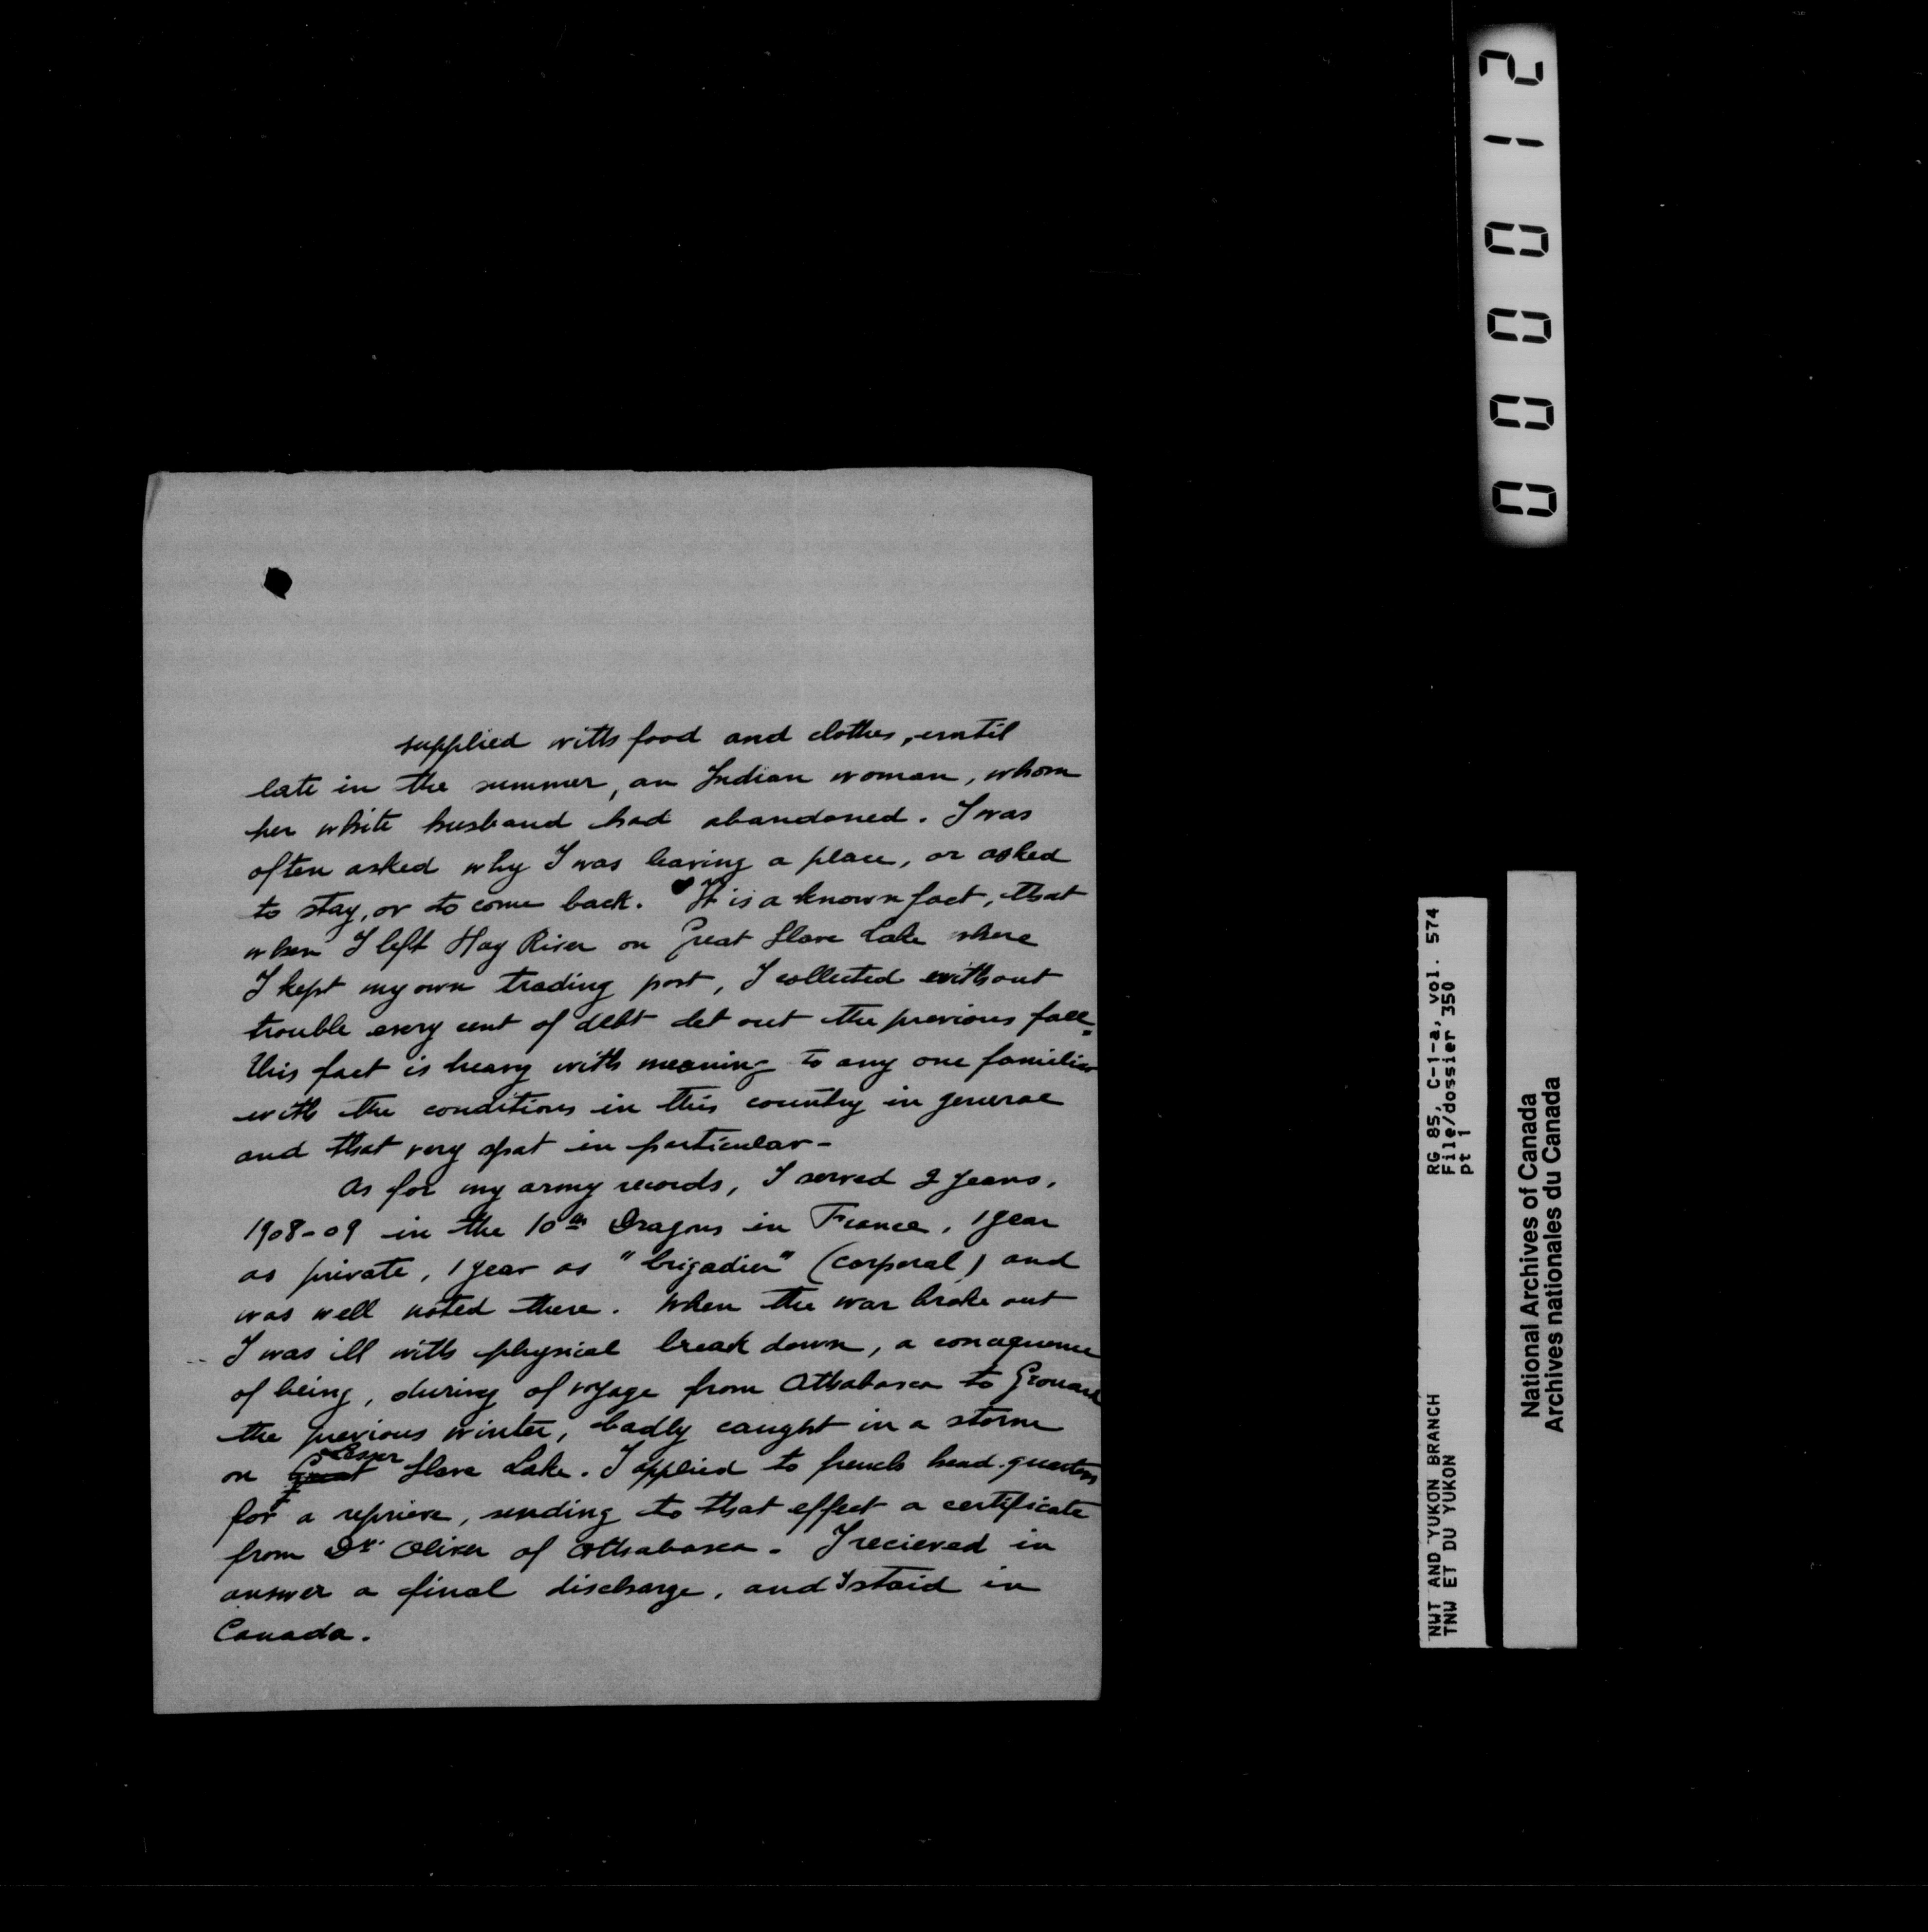 supplied with food and clothes, until
late in the summer, an Indian woman, whom
her white husband had abandoned. I was
often asked why I was leaving a place, or asked
to stay, or to come back. It is a known fact, that
when I left Hay River on Great Slave Lake where
I kept my own trading post, I collected without
trouble every cent of debt let out the previous fall.
This fact is heavy with meaning to any one familiar
with the conditions in this country in general
and that very spot in particular -
As for my army records, I served 2 years,
1908-09 in the 10th Dragons in France, 1 year
as private, 1 year as "brigadier" (corporal) and
was well noted there. When the war broke out
I was ill with physical break down, a consequence
of being, during of voyage from Athabasca to Grouard
the previous winter, badly caught in a storm
on Great Lesser Slave Lake. I applied to french head-quarters
for a reprieve, sending to that effect a certificate
from Dr. Oliver of Athabasca. I recieved in
answer a final discharge, and I staid in
Canada.
210000
RG 85, C-1-a, vol. 574
File/dossier 350
pt 1
NWT AND YUKON BRANCH
TNW ET DU YUKON
National Archives of Canada
Archives nationales du Canada